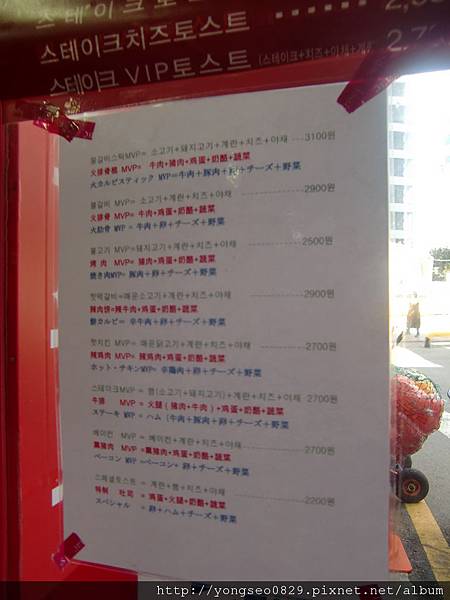 스테이크토스트
스테이크치즈토스트 ...... 2,
스테이크 VIP토스트 (스테이크+치즈+야채+계란
불갈비스틱MVP= 소고기+돼지고기+계란+치즈+야채 ...3100원
火排骨糕 MVP= 牛肉+猪肉+鸡蛋+奶酪+蔬菜
火カルビスティック MVP=牛肉+豚肉+卵+チーズ+野菜
불갈비 MVP= 소고기+계란+치즈+야채 2900원
火排骨 MVP= 牛肉+鸡蛋+奶酪+蔬菜
火肋骨 MVP = 牛肉+卵+チーズ+野菜
불고기 MVP=돼지고기+계란+치즈+야채 2500원
烤 肉 MVP= 猪肉+鸡蛋+奶酪+蔬菜
焼き肉MVP= 豚肉+卵+チーズ+野菜
핫떡갈비=매운소고기+계란+치즈+야채 2900원
辣肉饼=辣牛肉+鸡蛋+奶酪+蔬菜
カルビ= 辛牛肉+卵+チーズ+野菜
핫치킨 MVP = 매운닭고기+계란+치즈+야채 2700원
辣鸡肉 MVP= 辣鸡肉+鸡蛋+奶酪+蔬菜
ホット・チキンMVP= 辛鶏肉+卵+チーズ+野菜
스테이크MVP = 햄(소고기+돼지고기)+계란+치즈+야채 2700원
牛排 MVP = 火腿(猪肉+牛肉)+鸡蛋+奶酪+蔬菜
ステーキ MVP = ハム (牛肉+豚肉)+卵+チーズ+野菜
베이컨 MVP = 베이컨+계란+치즈+야채 2700원
熏猪肉 MVP =熏猪肉+鸡蛋+奶酪+蔬菜
ベーコン MVP =ベーコン+卵+チーズ+野菜
스페셜토스트 = 계란+햄+치즈+야채 2200원
特制 吐司 = 鸡蛋+火腿+奶酪+蔬菜
スペシャル = 卵+ハム+チーズ+野菜
http://yongseo0829.pixnet.net/album